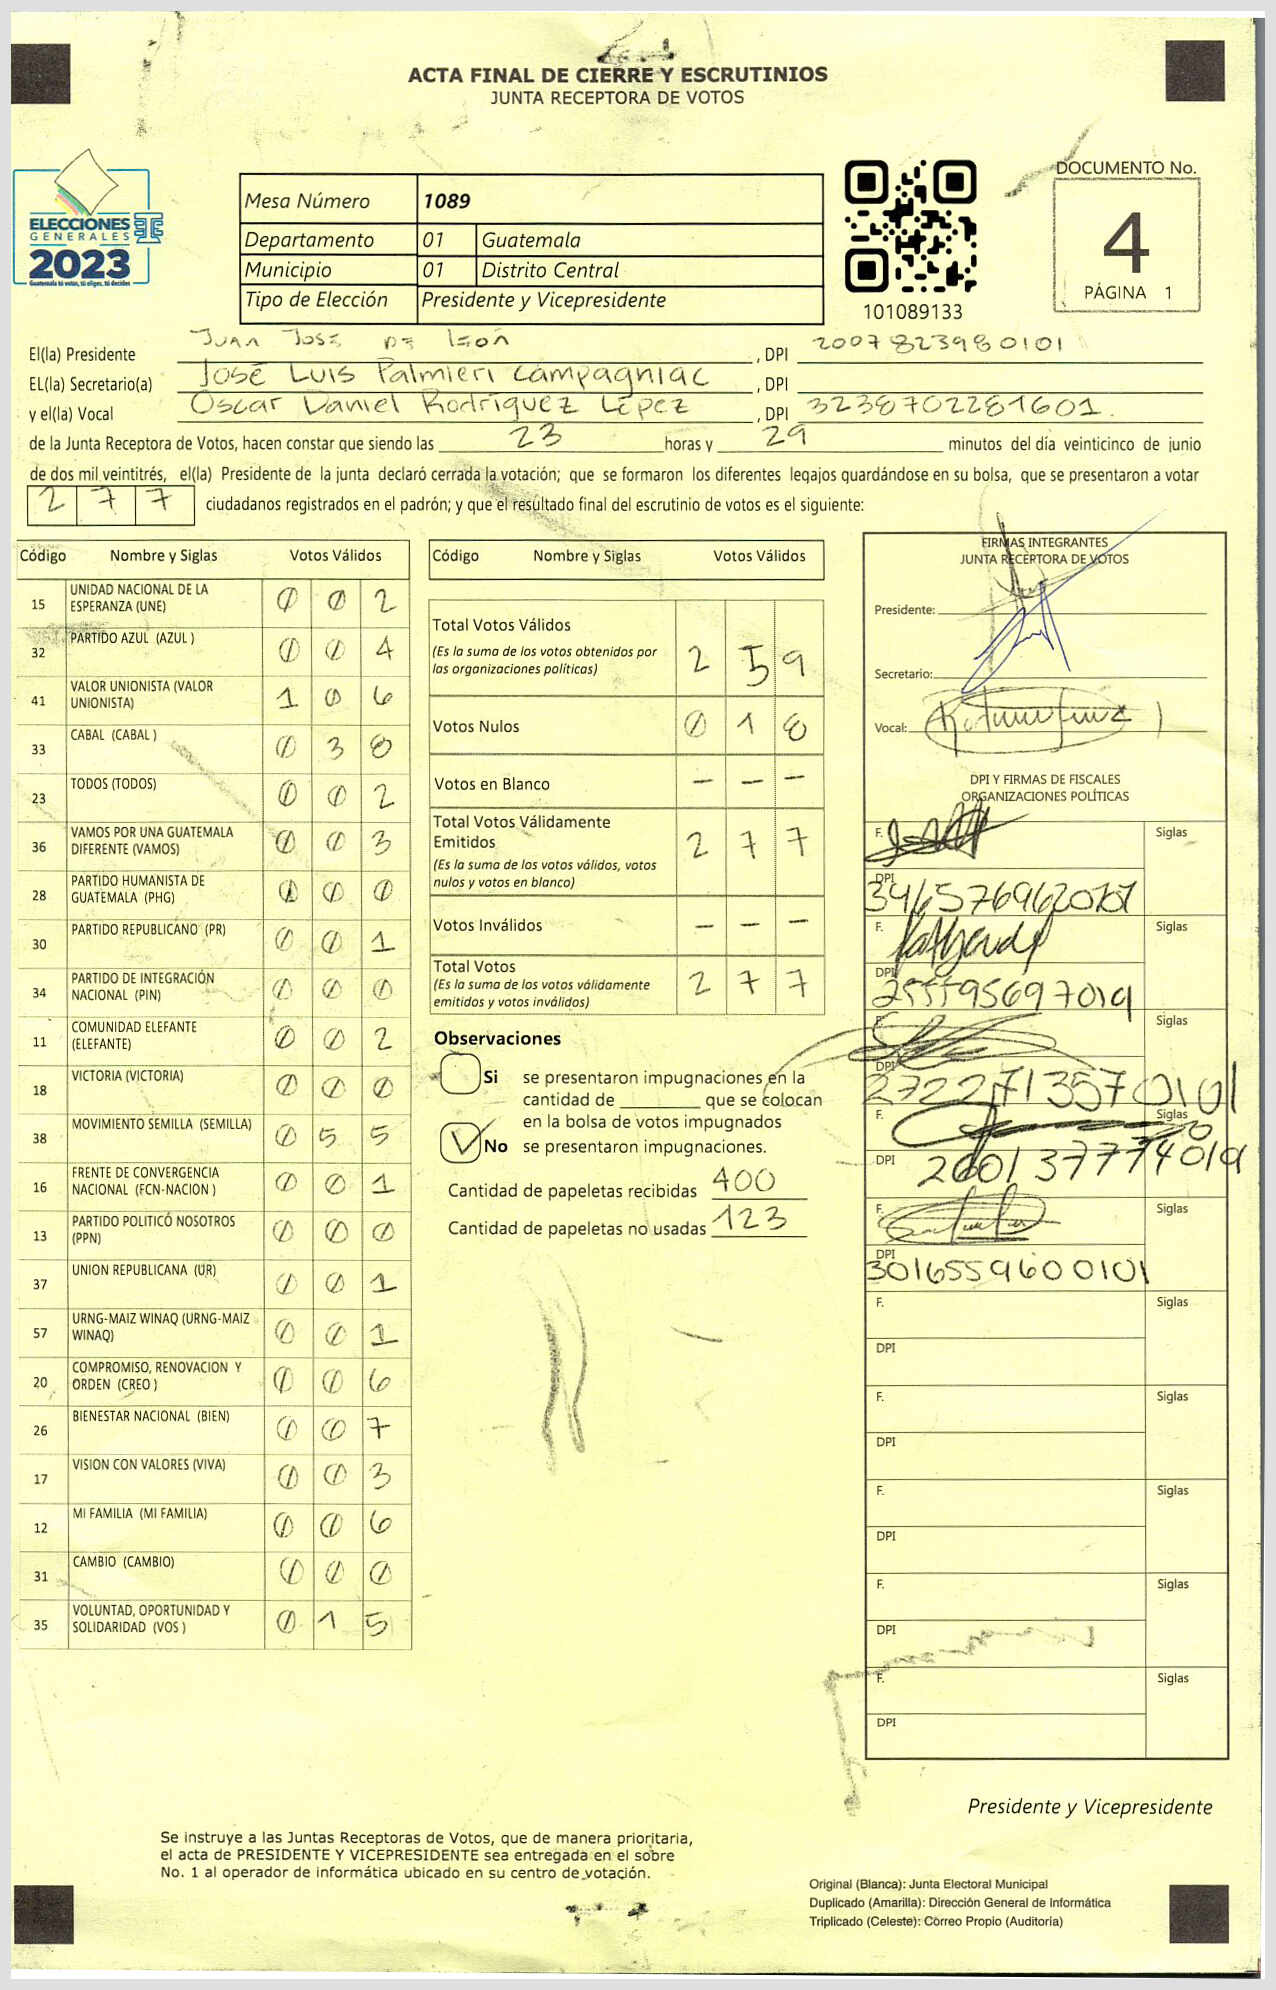 ACTA FINAL DE CIERRE Y ESCRUTINIOS
JUNTA RECEPTORA DE VOTOS
ELECCIONES
GENERALES
2023
Guatemala tú votas, tú eliges, tú decides
Mesa Número 1089
Departamento 01 Guatemala
Municipio 01 Distrito Central
Tipo de Elección Presidente y Vicepresidente
101089133
DOCUMENTO No.
4
PÁGINA 1
El(la) Presidente Juan José de León , DPI 2007823980101
EL(la) Secretario(a) José Luis Palmieri Campagniac , DPI
y el(la) Vocal Oscar Daniel Rodríguez López , DPI 3238702281601.
de la Junta Receptora de Votos, hacen constar que siendo las 23 horas y 29 minutos del día veinticinco de junio
de dos mil veintitrés, el(la) Presidente de la junta declaró cerrada la votación; que se formaron los diferentes legajos guardándose en su bolsa, que se presentaron a votar
2 7 7 ciudadanos registrados en el padrón; y que el resultado final del escrutinio de votos es el siguiente:
Código Nombre y Siglas Votos Válidos
15 UNIDAD NACIONAL DE LA ESPERANZA (UNE) 0 0 2
32 PARTIDO AZUL (AZUL ) 0 0 4
41 VALOR UNIONISTA (VALOR UNIONISTA) 1 0 6
33 CABAL (CABAL ) 0 3 8
23 TODOS (TODOS) 0 0 2
36 VAMOS POR UNA GUATEMALA DIFERENTE (VAMOS) 0 0 3
28 PARTIDO HUMANISTA DE GUATEMALA (PHG) 0 0 0
30 PARTIDO REPUBLICANO (PR) 0 0 1
34 PARTIDO DE INTEGRACIÓN NACIONAL (PIN) 0 0 0
11 COMUNIDAD ELEFANTE (ELEFANTE) 0 0 2
18 VICTORIA (VICTORIA) 0 0 0
38 MOVIMIENTO SEMILLA (SEMILLA) 0 5 5
16 FRENTE DE CONVERGENCIA NACIONAL (FCN-NACION ) 0 0 1
13 PARTIDO POLITICÓ NOSOTROS (PPN) 0 0 0
37 UNION REPUBLICANA (UR) 0 0 1
57 URNG-MAIZ WINAQ (URNG-MAIZ WINAQ) 0 0 1
20 COMPROMISO, RENOVACION Y ORDEN (CREO ) 0 0 6
26 BIENESTAR NACIONAL (BIEN) 0 0 7
17 VISION CON VALORES (VIVA) 0 0 3
12 MI FAMILIA (MI FAMILIA) 0 0 6
31 CAMBIO (CAMBIO) 0 0 0
35 VOLUNTAD, OPORTUNIDAD Y SOLIDARIDAD (VOS ) 0 1 5
Código Nombre y Siglas Votos Válidos
Total Votos Válidos 2 5 9
(Es la suma de los votos obtenidos por
las organizaciones políticas)
Votos Nulos 0 1 8
Votos en Blanco – – –
Total Votos Válidamente
Emitidos 2 7 7
(Es la suma de los votos válidos, votos
nulos y votos en blanco)
Votos Inválidos – – –
Total Votos 2 7 7
(Es la suma de los votos válidamente
emitidos y votos inválidos)
Observaciones
Si se presentaron impugnaciones en la
cantidad de ________ que se colocan
en la bolsa de votos impugnados
No se presentaron impugnaciones.
Cantidad de papeletas recibidas 400
Cantidad de papeletas no usadas 123
FIRMAS INTEGRANTES
JUNTA RECEPTORA DE VOTOS
Presidente:
Secretario:
Vocal:
DPI Y FIRMAS DE FISCALES
ORGANIZACIONES POLÍTICAS
F. Siglas
DPI
F. Siglas
DPI
F. Siglas
DPI 2722713570101
F. Siglas
DPI
F. Siglas
DPI 3016559600101
F. Siglas
DPI
F. Siglas
DPI
F. Siglas
DPI
F. Siglas
DPI
F. Siglas
DPI
Presidente y Vicepresidente
Se instruye a las Juntas Receptoras de Votos, que de manera prioritaria,
el acta de PRESIDENTE Y VICEPRESIDENTE sea entregada en el sobre
No. 1 al operador de informática ubicado en su centro de votación.
Original (Blanca): Junta Electoral Municipal
Duplicado (Amarilla): Dirección General de Informática
Triplicado (Celeste): Correo Propio (Auditoría)